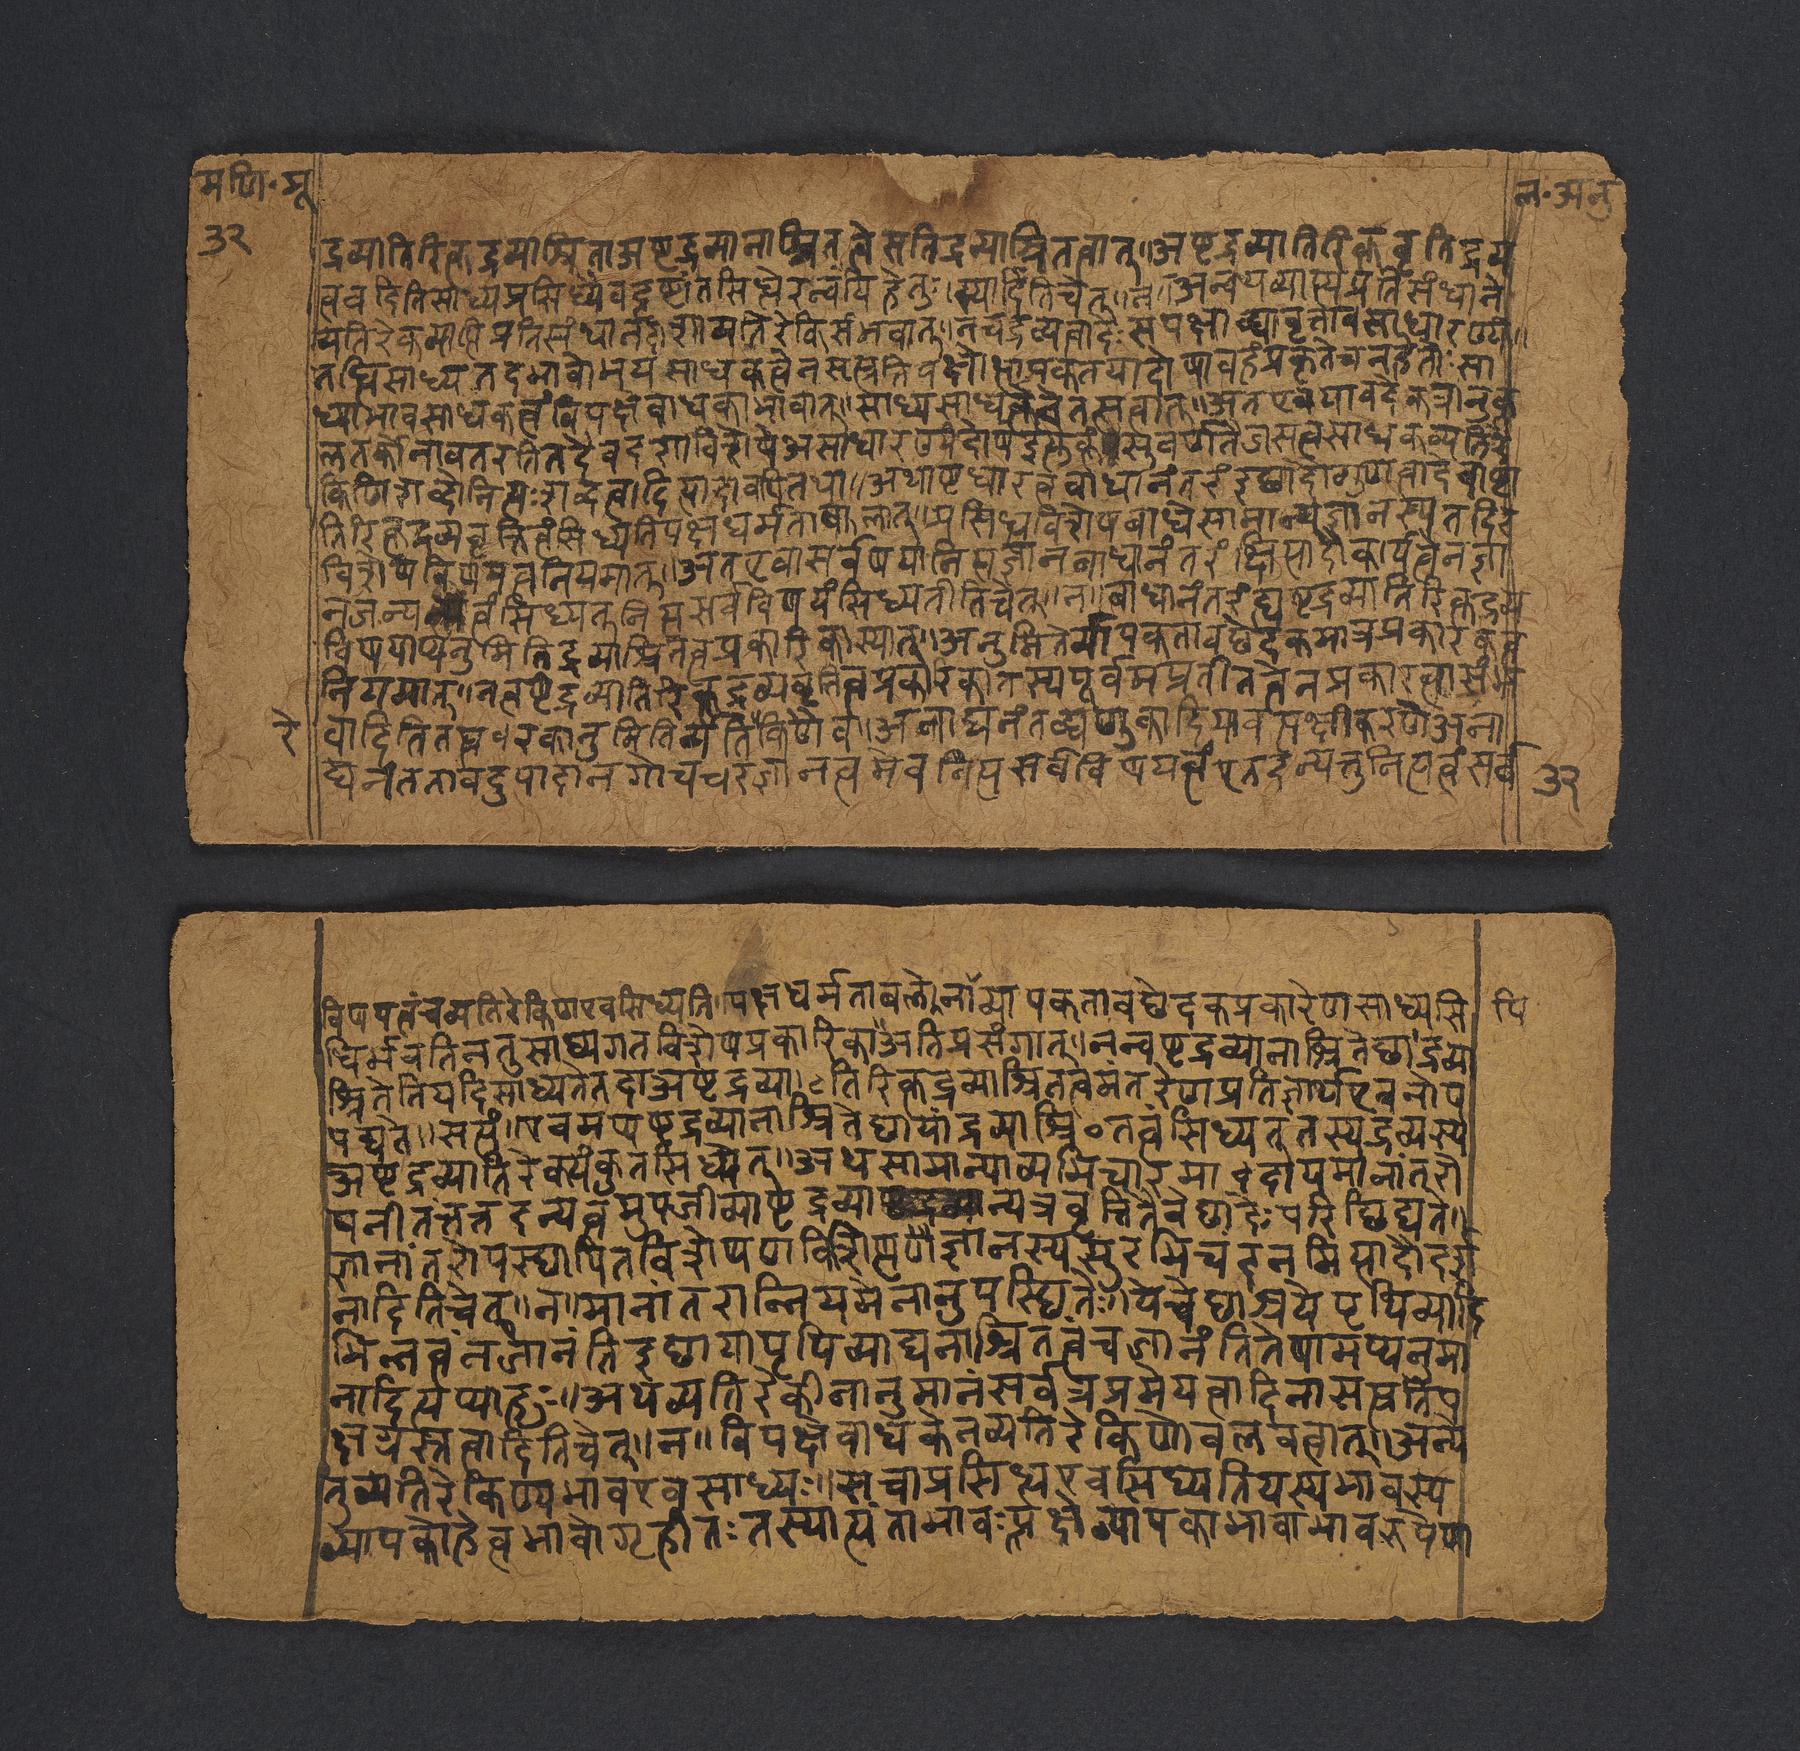 मणि·मू
ल·अनु
३२
द्रव्यातिरिक्तद्रव्याश्रिता अष्टद्रव्यानाश्रितत्वे सति द्रव्याश्रितत्वात्॥अष्टद्रव्यातिरिक्तवृतिद्रव्य
त्ववदितिसाध्यप्रसिध्यैवदृष्टांतसिध्धेरन्वयिहेतुः॥स्यादितिचेत्॥न॥अन्वयव्याप्त्यप्रतिसंधाने
व्यतिरेकव्याप्तिप्रतिसंधानदशायांव्यतिरेकिसंभवात्॥नचद्रव्यत्वादेः सपक्षाद्व्यावृत्तावसाधारण्यं॥
तद्धिसाध्यतदभावोभयसाधकत्वेनसत्प्रतिपक्षोत्थापकतयादोषावहंप्रकृतेचनहेतोः सा
ध्याभावसाधकत्वंविपक्षेबाधकाभावात्॥साध्यसाधकत्वेतत्सत्वात्॥अतएवयावदेकत्रानुकू
लतर्कोनावतरतितदैवदशाविशेषेअसाधारण्यंदोषइत्युक्तं॥सुवर्णतैजसत्वसाधकव्यतिरे
किणिशब्दोनित्यःशब्दत्वादित्यादावपितथा॥अथाष्टधारत्वबाधानंतरंइछादौगुणत्वादेवाष्टा
तिरिक्तद्रव्यवृत्तित्वंसिध्यतिपक्षधर्मताबलात्॥प्रसिध्धविशेषबाधेसामान्यज्ञानस्यतदित
विशेषविषयत्वनियमात्॥अतएवासर्वविषयानित्यज्ञानबाधानंतरंक्षित्यादौकार्यत्वेनज्ञा
नजन्यत्वंसिध्यत्नित्यसर्वविषयंसिध्यतीतिचेत्॥न॥बाधानंतरंह्यष्टद्रव्यातिरिक्तद्रव्य
विषयाप्यनुमितिद्रव्याश्रितत्वप्रकारिकास्यात्॥अनुमितेर्व्यापकतावछेदकमात्रप्रकारकत्व
नियमात्॥नत्वष्टद्रव्यातिरिक्तद्रव्यवृत्तित्वप्रकारिकातस्यपूर्वमप्रतीतत्वेनप्रकारत्वासंभ
रे
वादितितत्प्रकारकानुमितिर्व्यतिकिणैव॥अनाद्यनंतद्व्यणुकादियावत्पक्षीकरणेअना
द्यनंततावदुपादानगोचचरज्ञानत्वमेवनित्यसर्वविषयत्वंएतदन्यत्तुनित्यत्वंसर्व
३२
विषयत्वंचव्यतिरेकिणएवसिध्यति॥पक्षधर्मताबलेनव्यापकतावछेदकप्रकारेणसाध्यसि
पि
धिर्भवतिनतुसाध्यगतविशेषप्रकारिकाअतिप्रसंगात्॥नन्वष्टद्रव्यानाश्रितेछाद्रव्या
श्रितेतियदिसाध्यतेतदाअष्टद्रव्यातिरिक्तद्रव्याश्रितत्वमंतरेणप्रतिज्ञार्थएवनोप
पद्यते॥सत्यं॥एवमप्यष्टद्रव्यानाश्रितेछायांद्रव्याश्रितत्वंसिध्यतुतस्यद्रव्यस्य
अष्टद्रव्यातिरेक्त्यंकुतसिध्येत्॥अथसामान्याव्यभिचारमादायमानांतरो
पनीतंतत्तदन्यत्वमुपजीव्याष्टद्रव्यान्यत्रवृत्तितैवेछादेःपरिछिद्यते॥
मानांतरोपस्थापितविशेषणविशिष्टज्ञानस्यसुरभिचंदनमित्यादौदर्श
नादितिचेत्॥न॥मानांतरान्नियमेनानुपस्थितेः॥येचेछाश्रयेपृथिव्यादि
भिन्नत्वंनजानंतिइछायापृथिव्याद्यनाश्रितत्वंचजानंतितेषामप्यनुमा
नादित्यप्याहुः॥अथव्यतिरेकीनानुमानंसर्वत्रप्रमेयत्वादिनासत्प्रतिप
क्षग्रस्तत्वादितिचेत्॥न॥विपक्षेबाधकेनव्यतिरेकिणोबलवत्वात्॥अन्ये
तुव्यतिरेकिण्यभावएवसाध्यः॥सचाप्रसिध्धएवसिध्यतियस्यभावस्य
व्यापकोहेत्वभावोगृहीतःतस्यात्यंताभावःपक्षेव्यापकाभावाभावरूपेणा